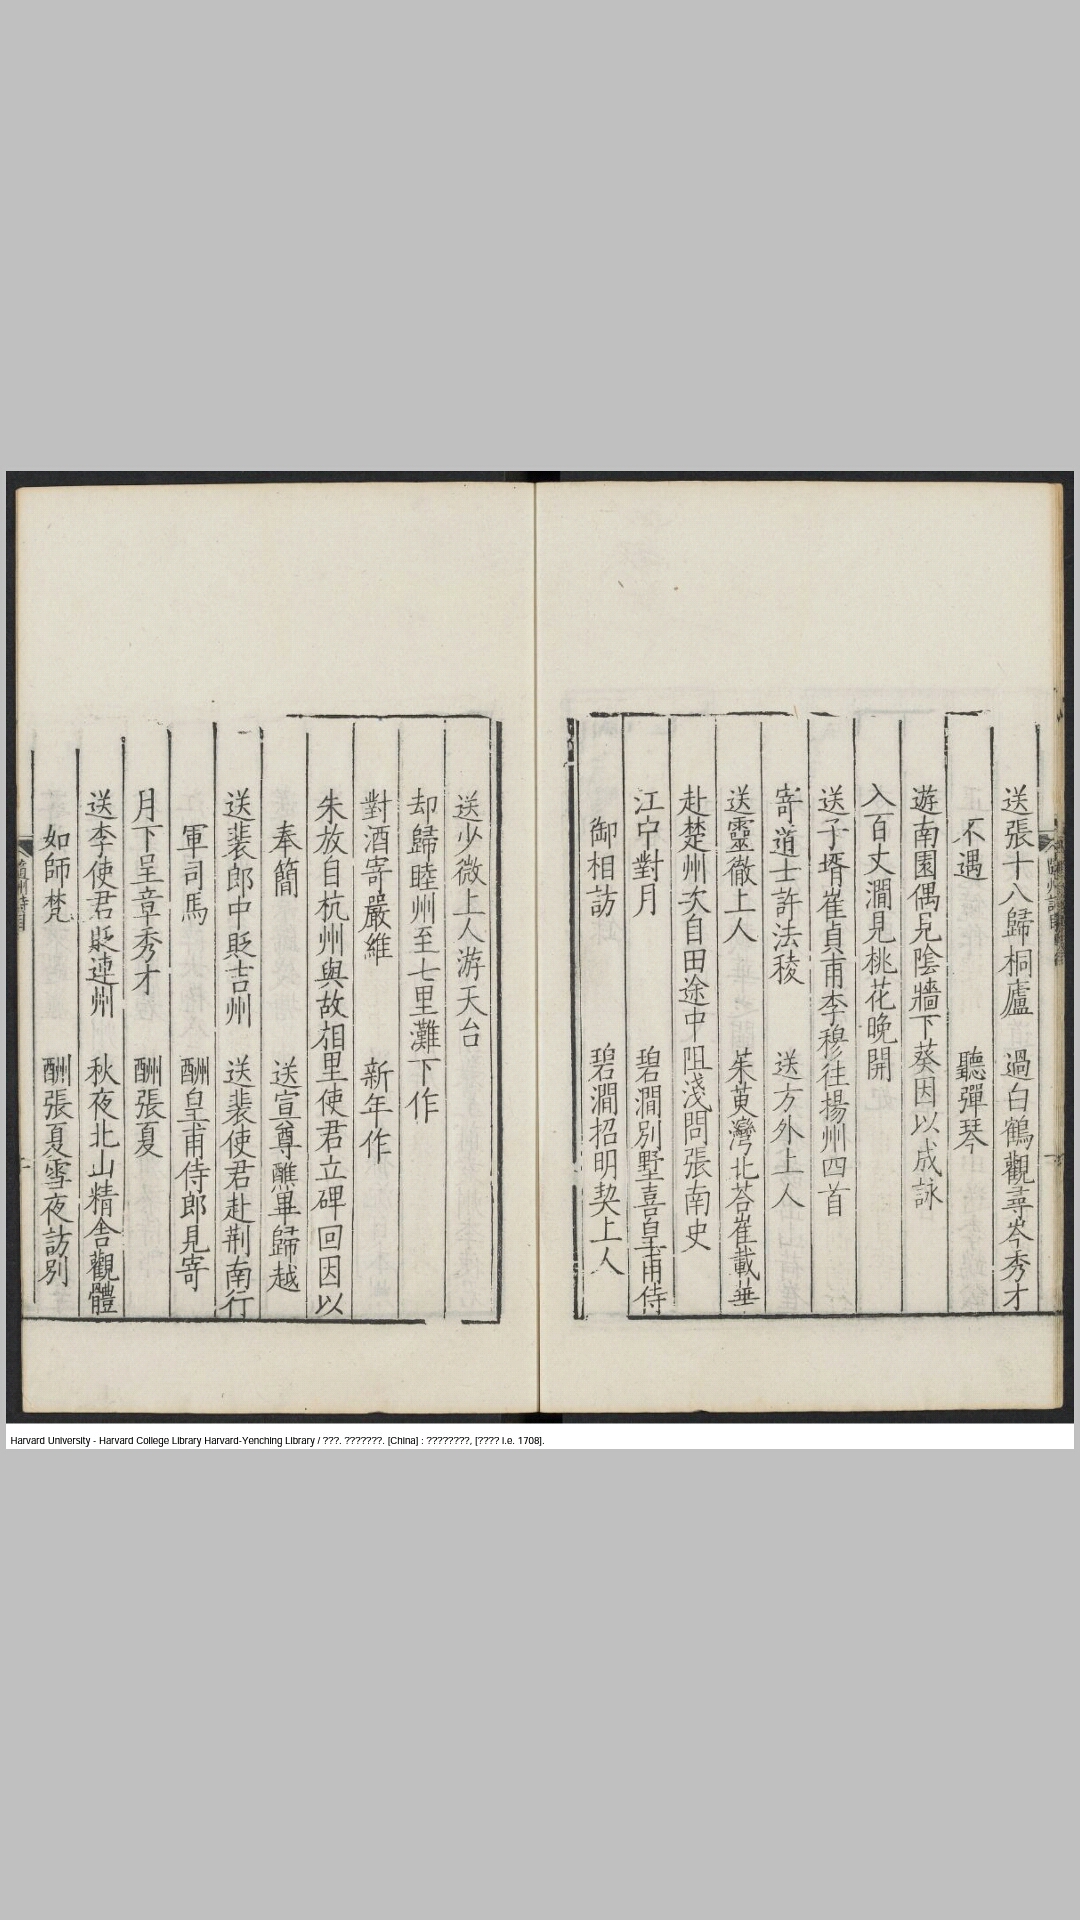 送張十八歸桐廬　過白鶴觀尋岑秀才
不遇　聽彈琴
遊南園偶見陰牆下葵因以成詠
入百丈澗見桃花晚開
送子壻崔貞甫李穆往揚州四首
寄道士許法稜　送方外上人
送靈徹上人　茱萸灣北荅崔載華
赴楚州次自田途中阻淺問張南史
江中對月　碧澗別墅喜皇甫侍
御相訪　碧澗招明契上人
送少微上人游天台
却歸睦州至七里灘下作
對酒寄嚴維　新年作
朱放自杭州與故相里使君立碑回因以
奉簡　送宣尊醮畢歸越
送裴郎中貶吉州　送裴使君赴荆南行
軍司馬　酬皇甫侍郎見寄
月下呈章秀才　酬張夏
送李使君貶連州　秋夜北山精舍觀體
如師梵　酬張夏雪夜訪別
Harvard University - Harvard College Library Harvard-Yenching Library / ???. ???????. [China] : ????????, [???? i.e. 1708].